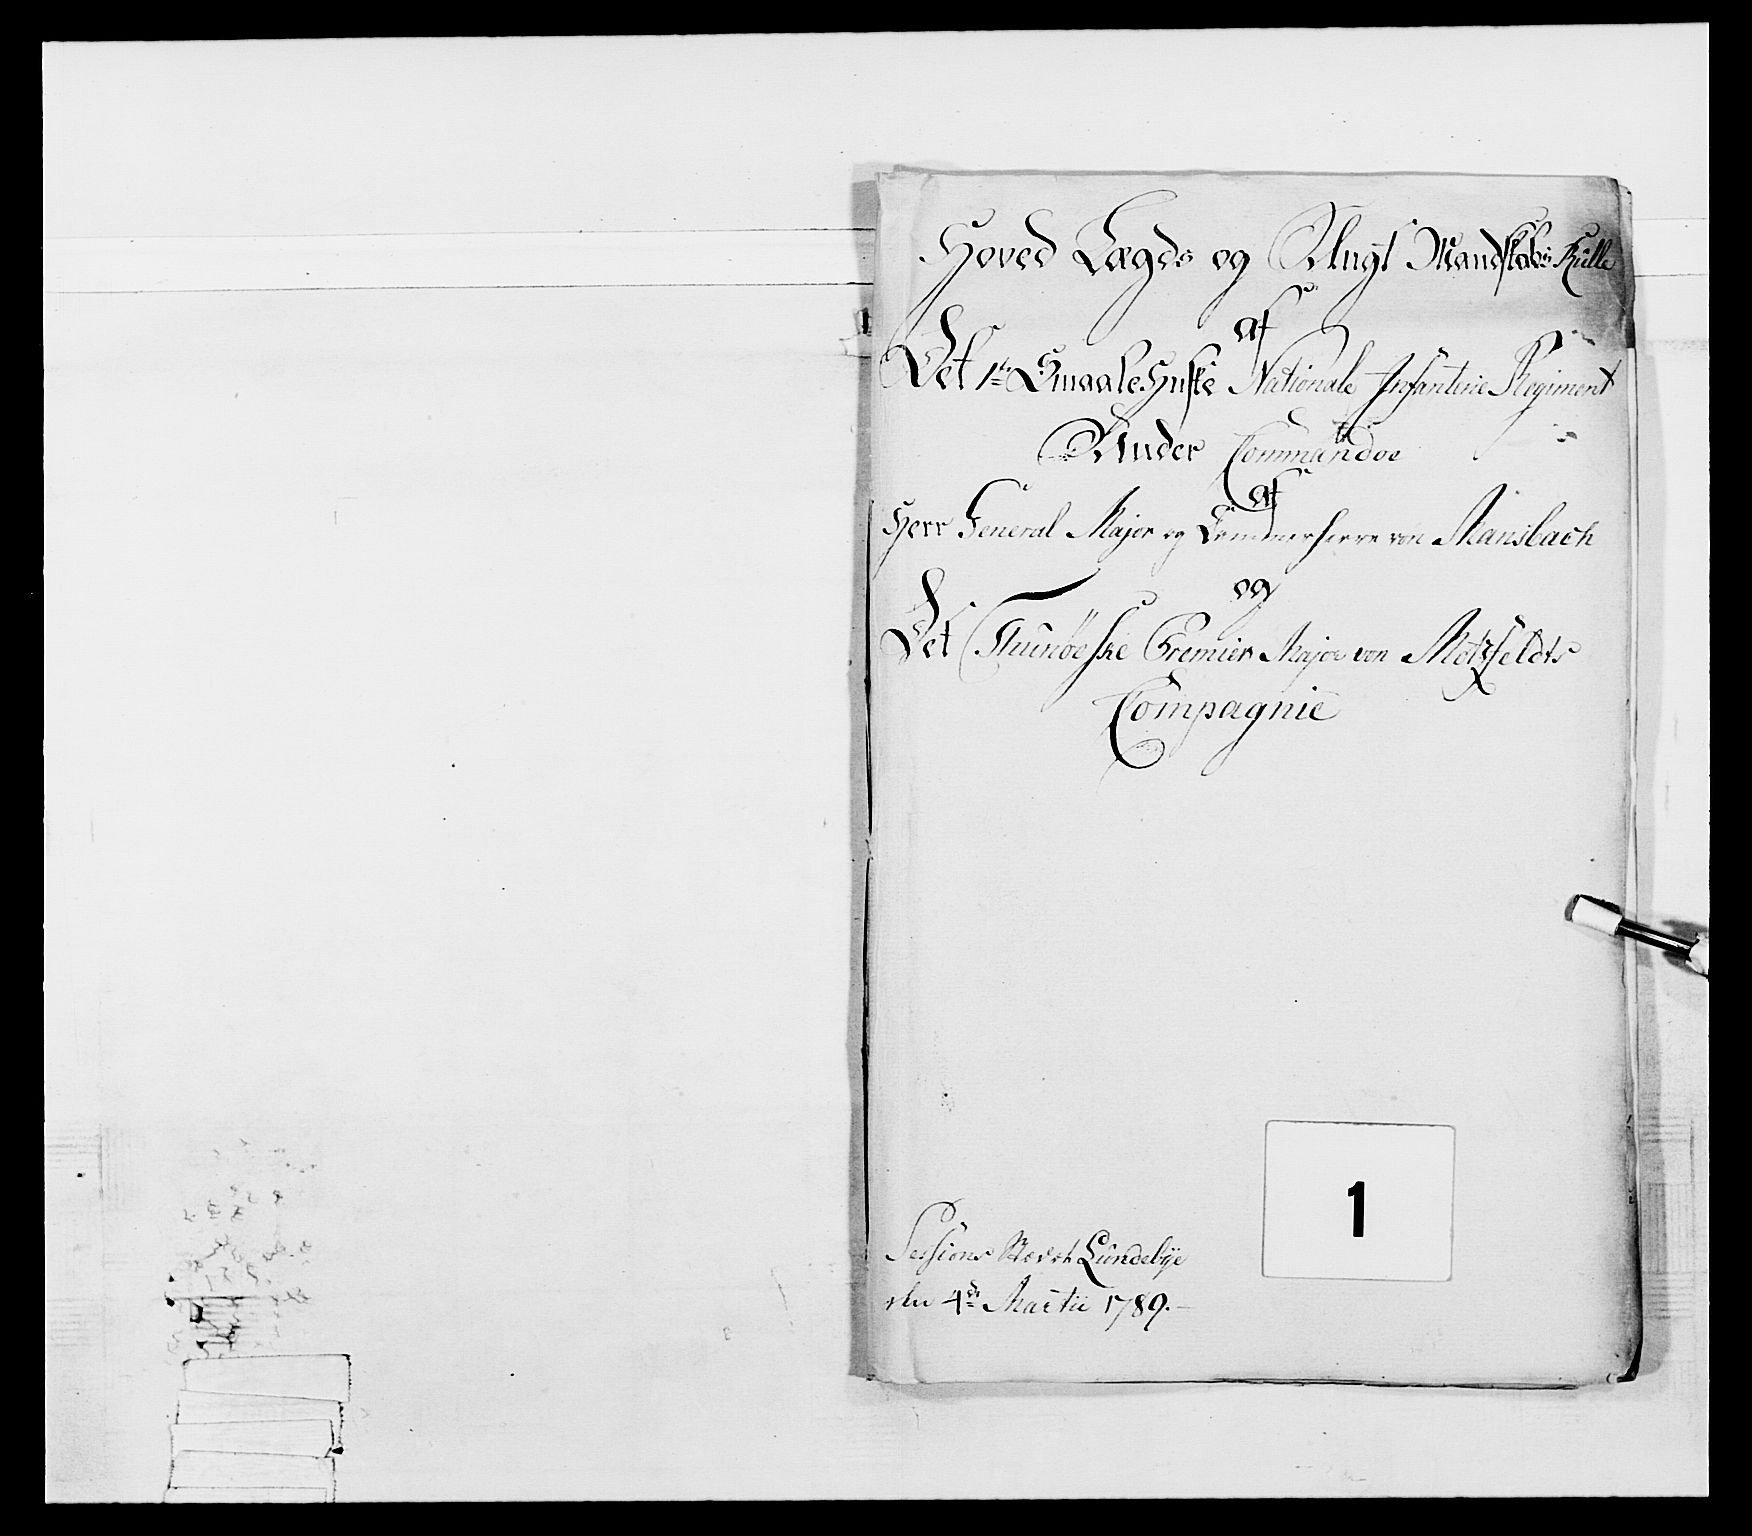 Hoved Lægds og Ungt Mandskabs Rulle
af
Det 1te Smaalehnske Nationale Infanterie Regiment
Under Commandoe
af
Herr General Major og Kammerherre von Mansbach
og
Det Thunöeske Premier Major von Motzfeldts
Compagnie
1
Sessions Stædet Lundebÿe
den 4de Martii 1789.